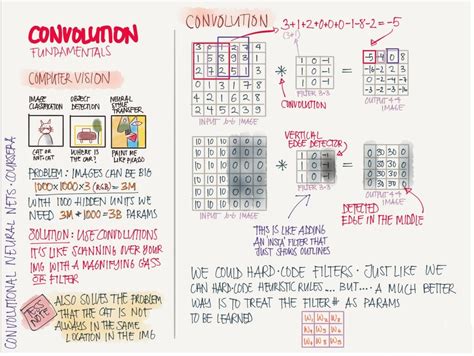 CONVOLUTION
FUNDAMENTALS
COMPUTER VISION
IMAGE
CLASSIFICATION
OBJECT
DETECTION
NEURAL
STYLE
TRANSFER
CAT OR
NOT-CAT
WHERE IS
THE CAR?
PAINT ME
LIKE PICASSO
PROBLEM: IMAGES CAN BE BIG
1000x1000x3 (RGB) = 3M
WITH 1000 HIDDEN UNITS WE
NEED 3M * 1000 = 3B PARAMS
SOLUTION: USE CONVOLUTIONS
IT'S LIKE SCANNING OVER YOUR
IMG WITH A MAGNIFYING GLASS
OR FILTER
ALSO SOLVES THE PROBLEM
THAT THE CAT IS NOT
ALWAYS IN THE SAME
LOCATION IN THE IMG
CONVOLUTIONAL NEURAL NETS · COURSERA
CONVOLUTION
3+1+2+0+0+0-1-8-2=-5
(3*1)
3 0 1 2 7 4
1 5 8 9 3 1
2 7 2 5 1 3
0 1 3 1 7 8
4 2 1 6 2 8
2 4 5 2 3 9
INPUT 6x6 IMAGE
*
1 0 -1
1 0 -1
1 0 -1
FILTER 3x3
CONVOLUTION
=
-5 -4 0 8
-10 -2 2 3
0 -2 -4 -7
-3 -2 -3 -16
OUTPUT 4x4
IMAGE
10 10 10 0 0 0
10 10 10 0 0 0
10 10 10 0 0 0
10 10 10 0 0 0
10 10 10 0 0 0
10 10 10 0 0 0
INPUT 6x6 IMAGE
*
VERTICAL
EDGE DETECTOR
1 0 -1
1 0 -1
1 0 -1
FILTER 3x3
=
0 30 30 0
0 30 30 0
0 30 30 0
0 30 30 0
OUTPUT 4x4
DETECTED
EDGE IN THE MIDDLE
THIS IS LIKE ADDING
AN INSTA FILTER THAT
JUST SHOWS OUTLINES
WE COULD HARD-CODE FILTERS · JUST LIKE WE
CAN HARD-CODE HEURISTIC RULES...BUT...A MUCH BETTER
WAY IS TO TREAT THE FILTER# AS PARAMS
TO BE LEARNED
W1 W2 W3
W4 W5 W6
W7 W8 W9